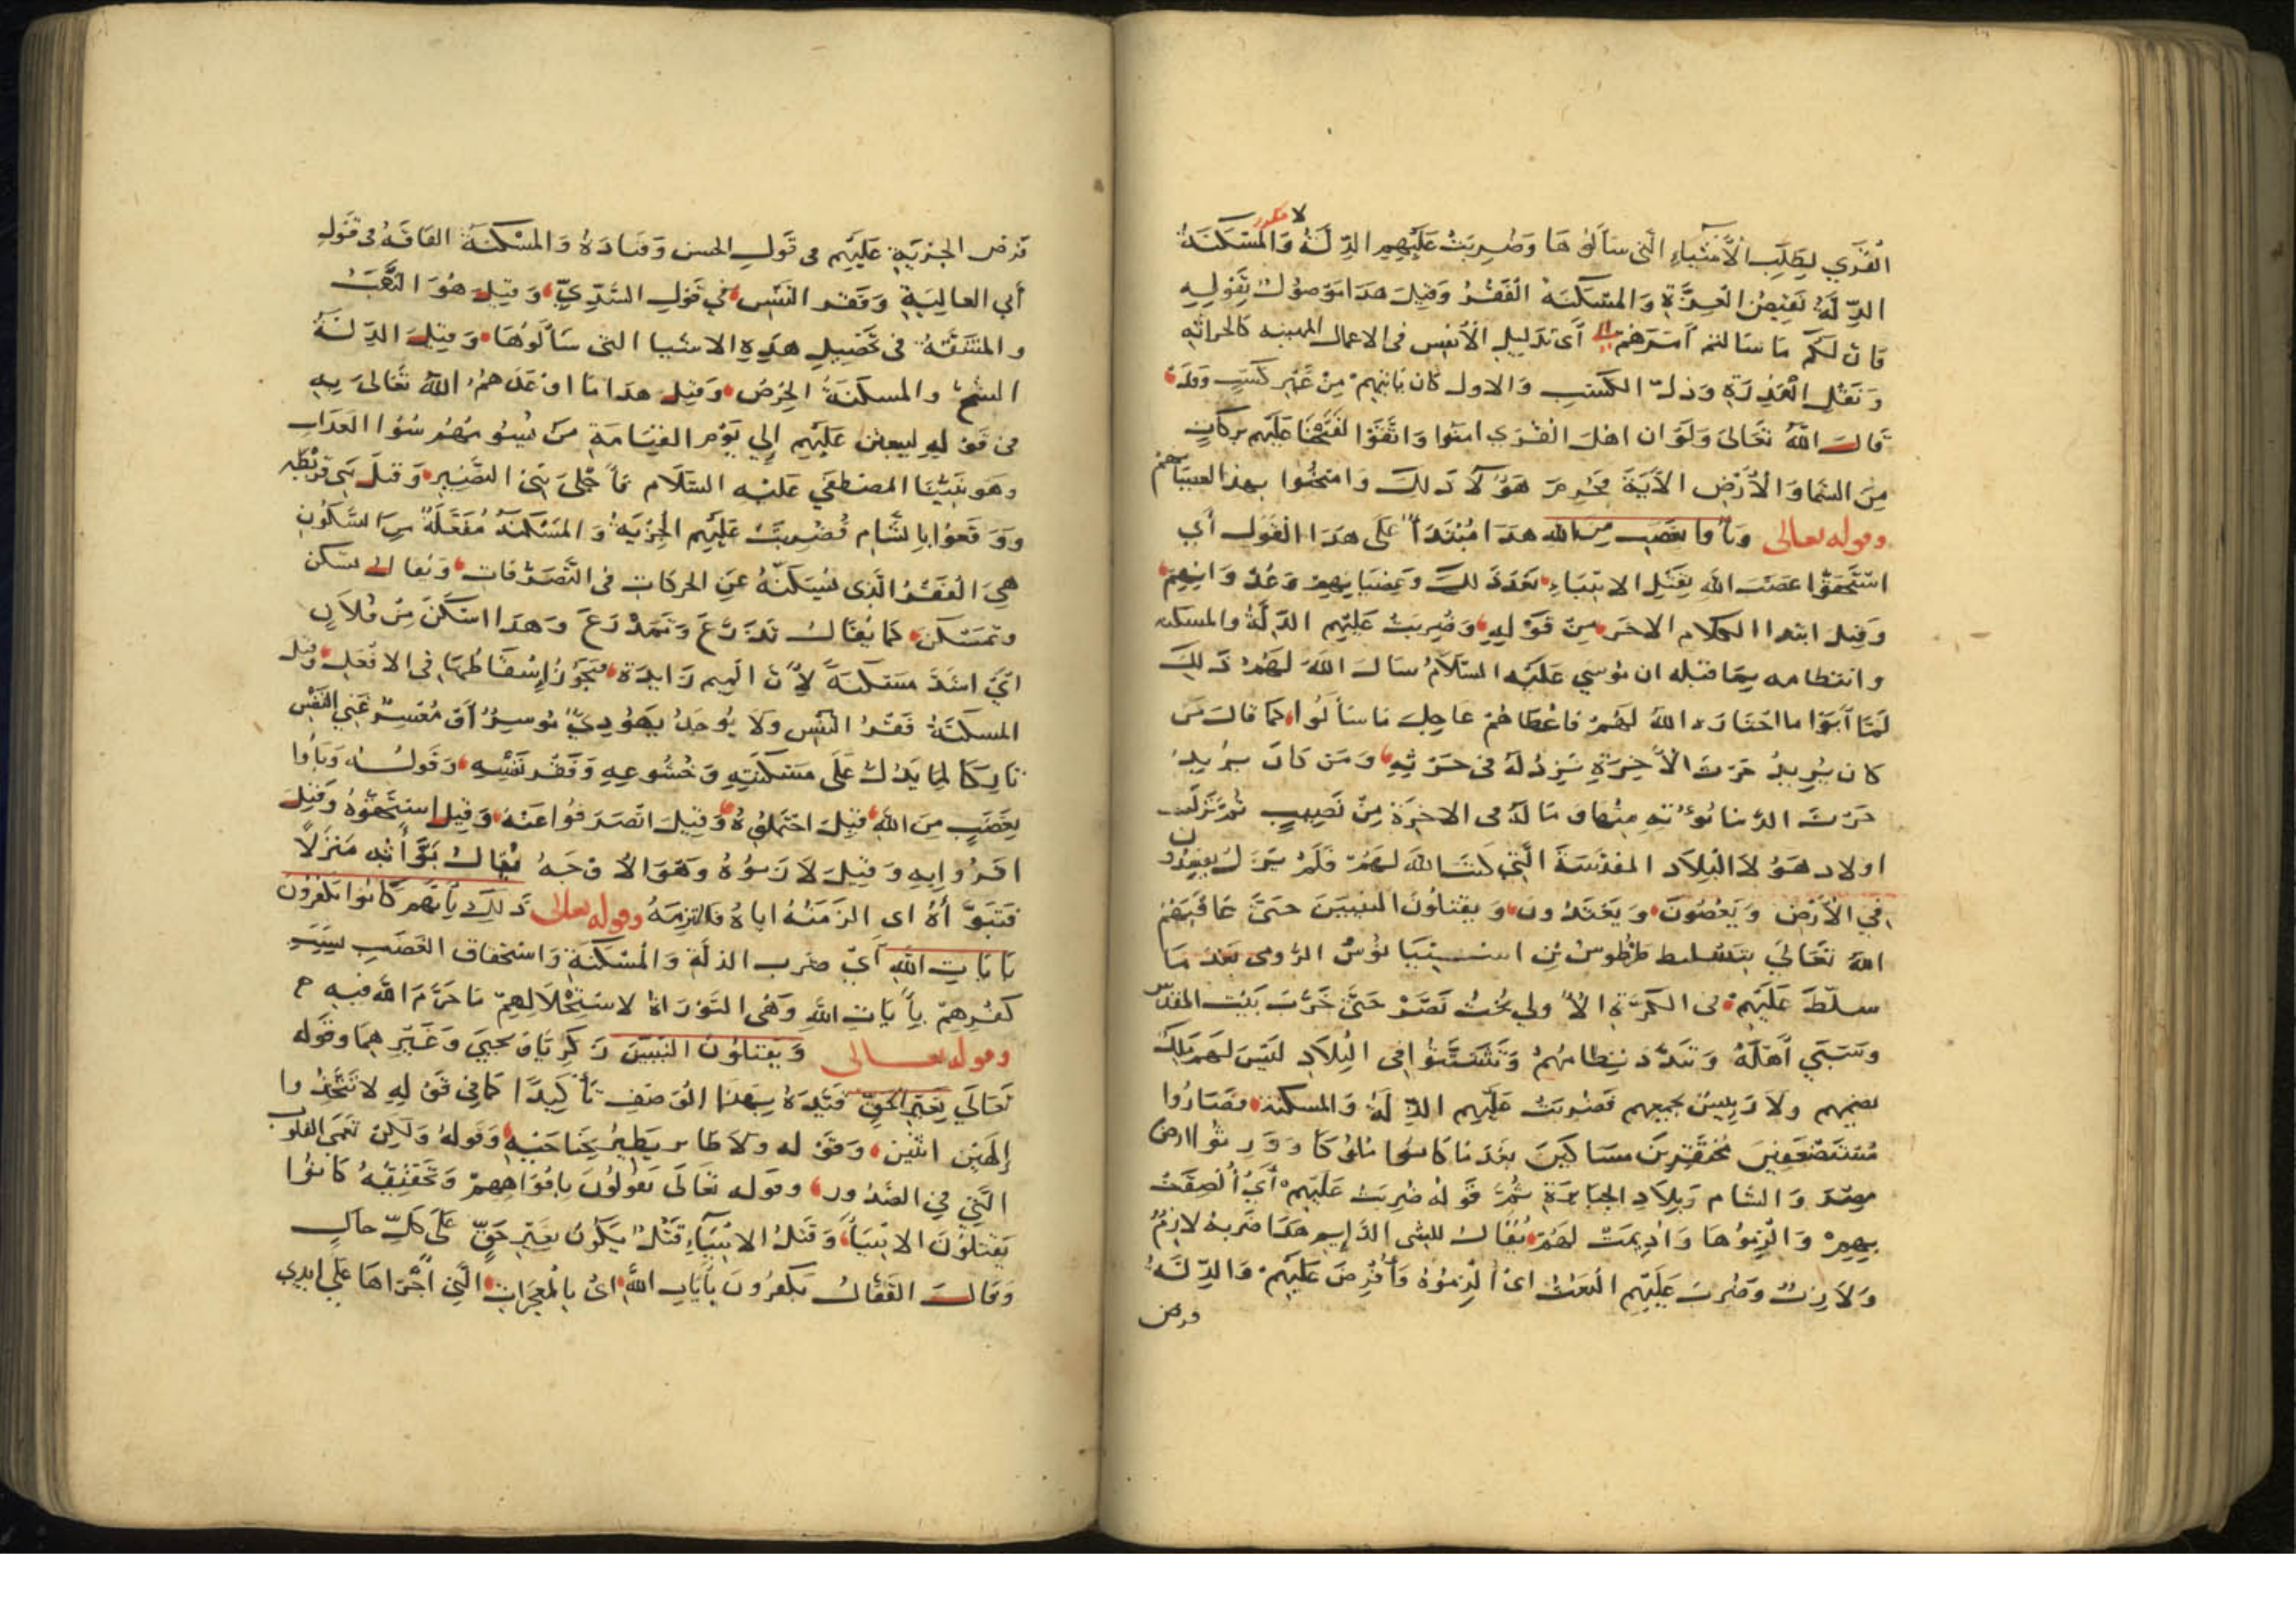 لا مكرر
القرى لطلب الأشياء التي سألوها وضربت عليهم الذلة والمسكنة
الذلة نقيض العزة والمسكنة الفقر وقيل هذا موصول بقوله
فان لكم ما سالتم أمرهم أي تذليل الأنفس في الاعمال المهينه كالحراثه
ونقل العذرة وذل الكسب والاول كان ياتيهم من غير كسب
قال الله تعالى ولو ان اهل القرى امنوا واتقوا لفتحنا عليهم بركات
من السما والأرض الآية فحرم هؤلاء ذلك وامتحنوا بهذا لعصيانهم
وقوله تعالى وباوا بغضب من الله هذا مبتدأ على هذا القول أي
استحقوا غضب الله بقتل الانبياء بعد ذلك وعصيانهم وعدوانهم
وقيل ابتدا الكلام الاخر من قوله وضربت عليهم الذلة والمسكنه
وانتظامه بما قبله ان موسي عليه السلام سال الله لهم ذلك
لما أبوا ما اختاره الله لهم فاعطاهم عاجل ما سألوا كما قال من
كان يريد حرث الآخرة نزد له في حرثه ومن كان يريد
حرث الدنيا نؤته منها وما له في الاخرة من نصيب ثم نزلت
اولاد هؤلا البلاد المقدسة التي كتب الله لهم فلم يزل يفسدون
في الأرض ويعصون ويعتدون ويقتلون النبيين حتى عاقبهم
الله تعالي بتسليط ططوس بن اسبسيانوس الرومى بعد ما
سلط عليهم في الكرة الأولي بخت نصر حتى خرب بيت المقدس
وسبي أهله وبدد نظامهم وتشتتوا في البلاد ليس لهم ملك
يضمهم ولا رييس يجمعهم فضربت عليهم الذلة والمسكنة فصاروا
مستضعفين محتقرين مساكين بعد ما كانوا ملوكا وورثوا ارض
مصر والشام وبلاد الجبابرة ثم قوله ضربت عليهم أي ألصقت
بهم والزموها واديمت لهم يقال للشي الدايم هذا ضربة لازم
ولازب وضرب عليهم البعث اي الزموه وأفرض عليهم والذلة
فرض
فرض الجزية عليهم في قول الحسن وقتادة والمسكنة الفاقة في قول
أبي العالية وفقر النفس في قول السدي وقيل هو التعب
والمشقة في تحصيل هذه الاشيا التي سألوها وقيل الذلة
الشح والمسكنة الحرص وقيل هذا ما اوعدهم الله تعالى به
في قوله ليبعثن عليهم إلي يوم القيامة من يسومهم سوا العذاب
وهو نبينا المصطفي عليه السلام لما أجلى بني النضير وقتل بني قريظه
ووقعوا بالشام فضربت عليهم الجزية والمسكنة مفعلة من السكون
هي الفقر الذي يسكنه عن الحركات في التصرفات ويقال سكن
وتمسكن كما يقال تدرع وتمدرع وهذا اسكن من فلان
اي اشد مسكنة لأن الميم زايدة فيجوز إسقاطها في الافعل وقيل
المسكنة فقر النفس ولا يوجد يهودي موسر أو معسر غني النفس
تاركا لما يدل على مسكنته وخشوعه وفقر نفسه وقوله وباوا
بغضب من الله قيل احتملوه وقيل انصرفوا عنه وقيل استحقوه وقيل
اقروا به وقيل لازموه وهو الاوجه يقال بوأته منزلا
فتبوأه اي الزمته اياه فالتزمه وقوله تعالى ذلك بأنهم كانوا يكفرون
بايات الله أي ضرب الذلة والمسكنة واستحقاق الغضب بسبب
كفرهم بأيات الله وهي التوراة لاستحلالهم ما حرم الله فيه
وقوله تعالى ويقتلون النبيين زكريا ويحيي وغيرهما وقوله
تعالي بغير الحق قيده بهذا الوصف تأكيدا كما في قوله لا تتخذوا
إلهين اثنين وقوله ولا طاير يطير بجناحيه وقوله ولكن تعمى القلوب
التي في الصدور وقوله تعالى يقولون بافواههم وتحقيقه كانوا
يقتلون الانبيا وقتل الانبياء قتل يكون بغير حق على كل حال
وقال القفال يكفرون بأيات الله اي بالمعجزات التي أجراها على ايدي